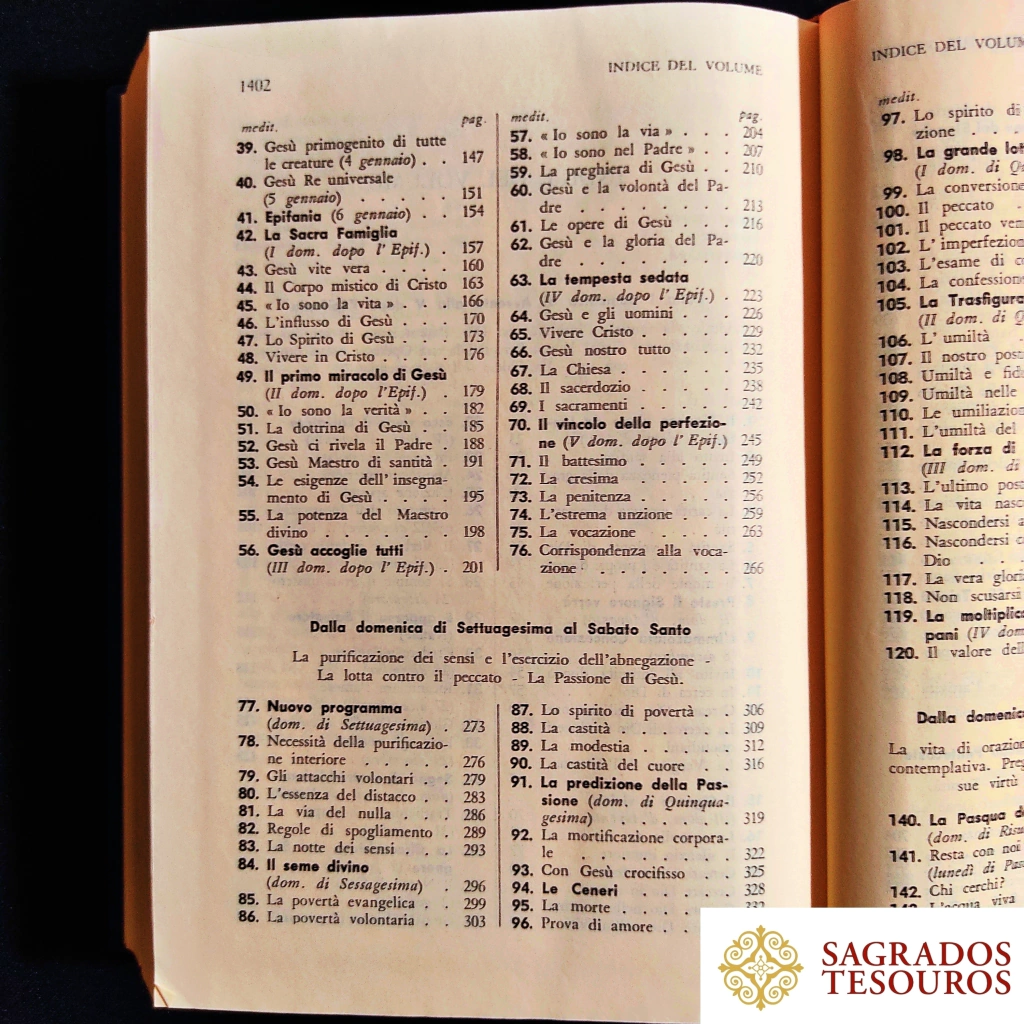 1402
INDICE DEL VOLUME
medit.
pag.
39. Gesù primogenito di tutte
le creature (4 gennaio) . . 147
40. Gesù Re universale
(5 gennaio) . . . . . 151
41. Epifania (6 gennaio) . . 154
42. La Sacra Famiglia
(I dom. dopo l' Epif.) . 157
43. Gesù vite vera . . . . 160
44. Il Corpo mistico di Cristo 163
45. « Io sono la vita » . . . 166
46. L'influsso di Gesù . . . 170
47. Lo Spirito di Gesù . . . 173
48. Vivere in Cristo . . . . 176
49. Il primo miracolo di Gesù
(II dom. dopo l'Epif.) . 179
50. « Io sono la verità » . . 182
51. La dottrina di Gesù . . 185
52. Gesù ci rivela il Padre . 188
53. Gesù Maestro di santità . 191
54. Le esigenze dell' insegna-
mento di Gesù . . . . 195
55. La potenza del Maestro
divino . . . . . . . 198
56. Gesù accoglie tutti
(III dom. dopo l' Epif.) . 201
medit.
pag.
57. « Io sono la via » . . . 204
58. « Io sono nel Padre » . . 207
59. La preghiera di Gesù . . 210
60. Gesù e la volontà del Pa-
dre . . . . . . . . 213
61. Le opere di Gesù . . . 216
62. Gesù e la gloria del Pa-
dre . . . . . . . . 220
63. La tempesta sedata
(IV dom. dopo l' Epif.) . 223
64. Gesù e gli uomini . . . 226
65. Vivere Cristo . . . . . 229
66. Gesù nostro tutto . . . 232
67. La Chiesa . . . . . . 235
68. Il sacerdozio . . . . . 238
69. I sacramenti . . . . . 242
70. Il vincolo della perfezio-
ne (V dom. dopo l' Epif.) 245
71. Il battesimo . . . . . 249
72. La cresima . . . . . 252
73. La penitenza . . . . . 256
74. L'estrema unzione . . . 259
75. La vocazione . . . . 263
76. Corrispondenza alla voca-
zione . . . . . . . . 266
Dalla domenica di Settuagesima al Sabato Santo
La purificazione dei sensi e l'esercizio dell'abnegazione -
La lotta contro il peccato - La Passione di Gesù.
77. Nuovo programma
(dom. di Settuagesima) . 273
78. Necessità della purificazio-
ne interiore . . . . . 276
79. Gli attacchi volontari . . 279
80. L'essenza del distacco . . 283
81. La via del nulla . . . 286
82. Regole di spogliamento . 289
83. La notte dei sensi . . . 293
84. Il seme divino
(dom. di Sessagesima) . 296
85. La povertà evangelica . . 299
86. La povertà volontaria . . 303
87. Lo spirito di povertà . . 306
88. La castità . . . . . . 309
89. La modestia . . . . . 312
90. La castità del cuore . . 316
91. La predizione della Pas-
sione (dom. di Quinqua-
gesima) . . . . . . 319
92. La mortificazione corpora-
le . . . . . . . . 322
93. Con Gesù crocifisso . . 325
94. Le Ceneri . . . . . 328
95. La morte . . . . .
96. Prova di amore . .
INDICE DEL
medit.
97. Lo spirito di
zione . . .
98. La grande
(I dom. di
99. La conversione
100. Il peccato
101. Il peccato
102. L'
103. L'esame di
104. La confessione
105. La
(II dom. di
106. L' umiltà
107. Il nostro
108. Umiltà e
109. Umiltà nelle
110. Le
111. L'umiltà del
112. La forza di
(III dom. di
113. L'ultimo
114. La vita
115. Nascondersi
116. Nascondersi
Dio . .
117. La vera
118. Non scusarsi
119. La
pani (IV
120. Il valore
Dalla
La vita di
contemplativa.
sue virtù
140. La Pasqua
(dom. di
141. Resta con noi
(lunedì di
142. Chi cerchi?
L'acqua viva
SAGRADOS
TESOUROS